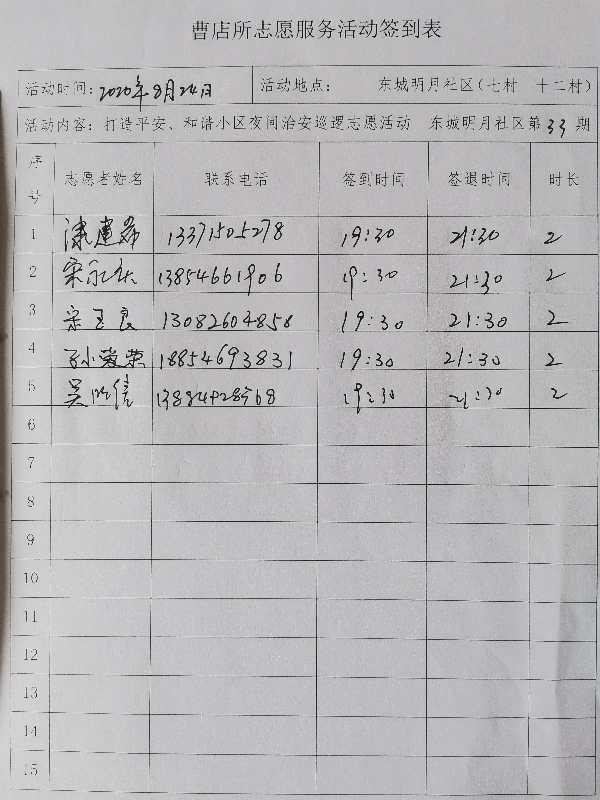 曹店所志愿服务活动签到表
活动时间: 2020年8月24日 活动地点: 东城明月社区(七村 十二村)
活动内容: 打造平安、和谐小区夜间治安巡逻志愿活动 东城明月社区第33期
序号 志愿者姓名 联系电话 签到时间 签退时间 时长
1 建 13371505278 19:30 21:30 2
2 宋永 13854661906 19:30 21:30 2
3 宋玉良 13082604858 19:30 21:30 2
4 孙小荣 18854693831 19:30 21:30 2
5 吴明信 19:30 21:30 2
6
7
8
9
10
11
12
13
14
15